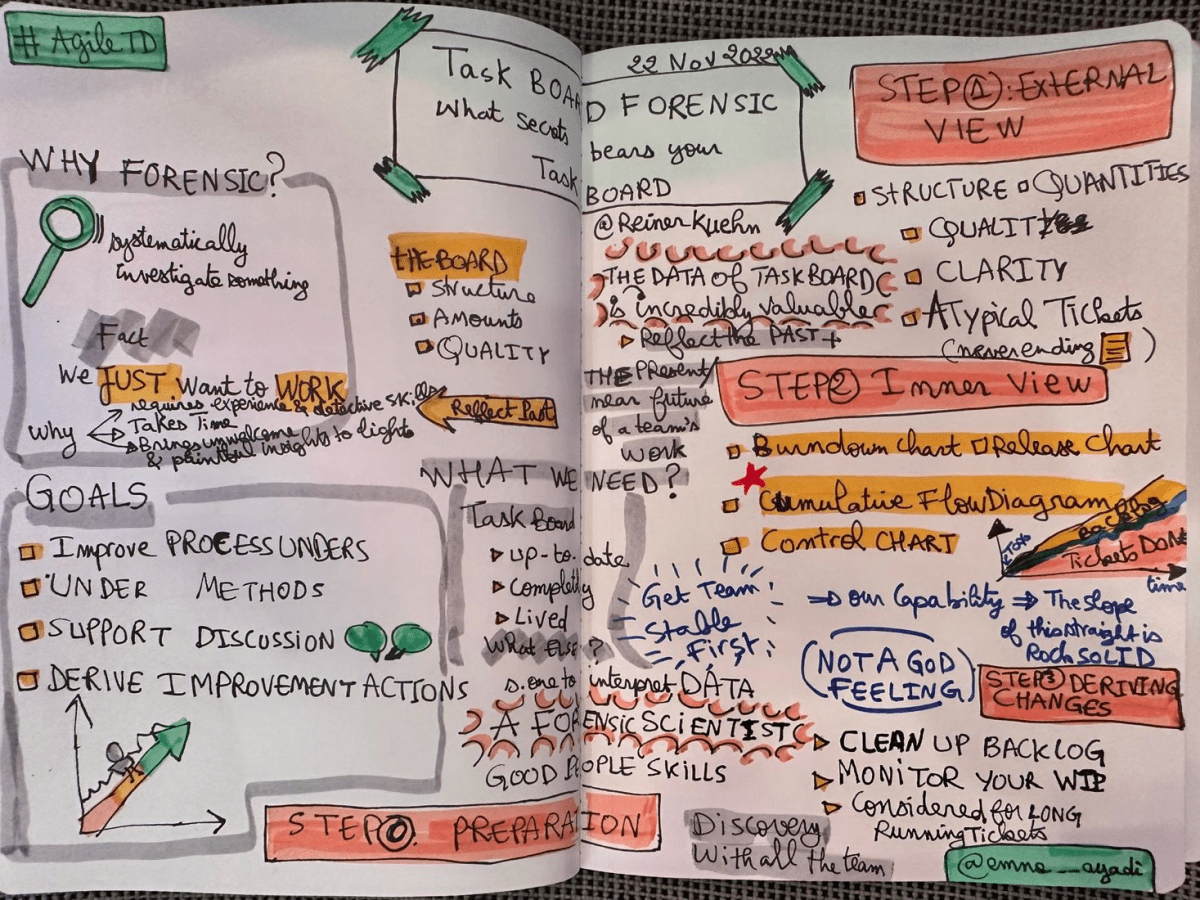 #AgileTD
22 Nov 2022
Task BOARD FORENSIC
What secrets bears your
Task BOARD
@ReinerKuehn
WHY FORENSIC?
systematically
investigate something
Fact
We JUST want to WORK
Why
requires experience & detective skills
Takes Time
Brings unwelcome
& painful insights to lights
Reflect Past
THE BOARD
Structure
AMOUNTS
QUALITY
GOALS
Improve PROCESS UNDERS
UNDER METHODS
SUPPORT DISCUSSION
DERIVE IMPROVEMENT ACTIONS
STEP 0. PREPARATION
THE DATA of TASK BOARD
is incredibly valuable
Reflect the PAST +
THE Present/
near future
of a team's
work
WHAT WE NEED?
Task Board
up-to-date
Completly
Lived
What else?
s.one to interpret DATA
A FORENSIC SCIENTIST
GOOD PEOPLE SKILLS
Get Team
Stable
First
STEP 1: External
VIEW
STRUCTURE QUANTITIES
QUALITY
CLARITY
ATypical Tickets
(never ending )
STEP 2 Inner View
Burndown chart Release Chart
Cumulative Flow Diagram
Control CHART
Backlog
Tickets DONE
time
⇒ our Capability ⇒ The slope
of this straight is
Rock SOLID
(NOT A GOD
FEELING)
STEP 3 DERIVING
CHANGES
CLEAN UP BACKLOG
MONITOR YOUR WIP
Considered for LONG
Running Tickets
Discovery
With all the team
@emna__ayadi